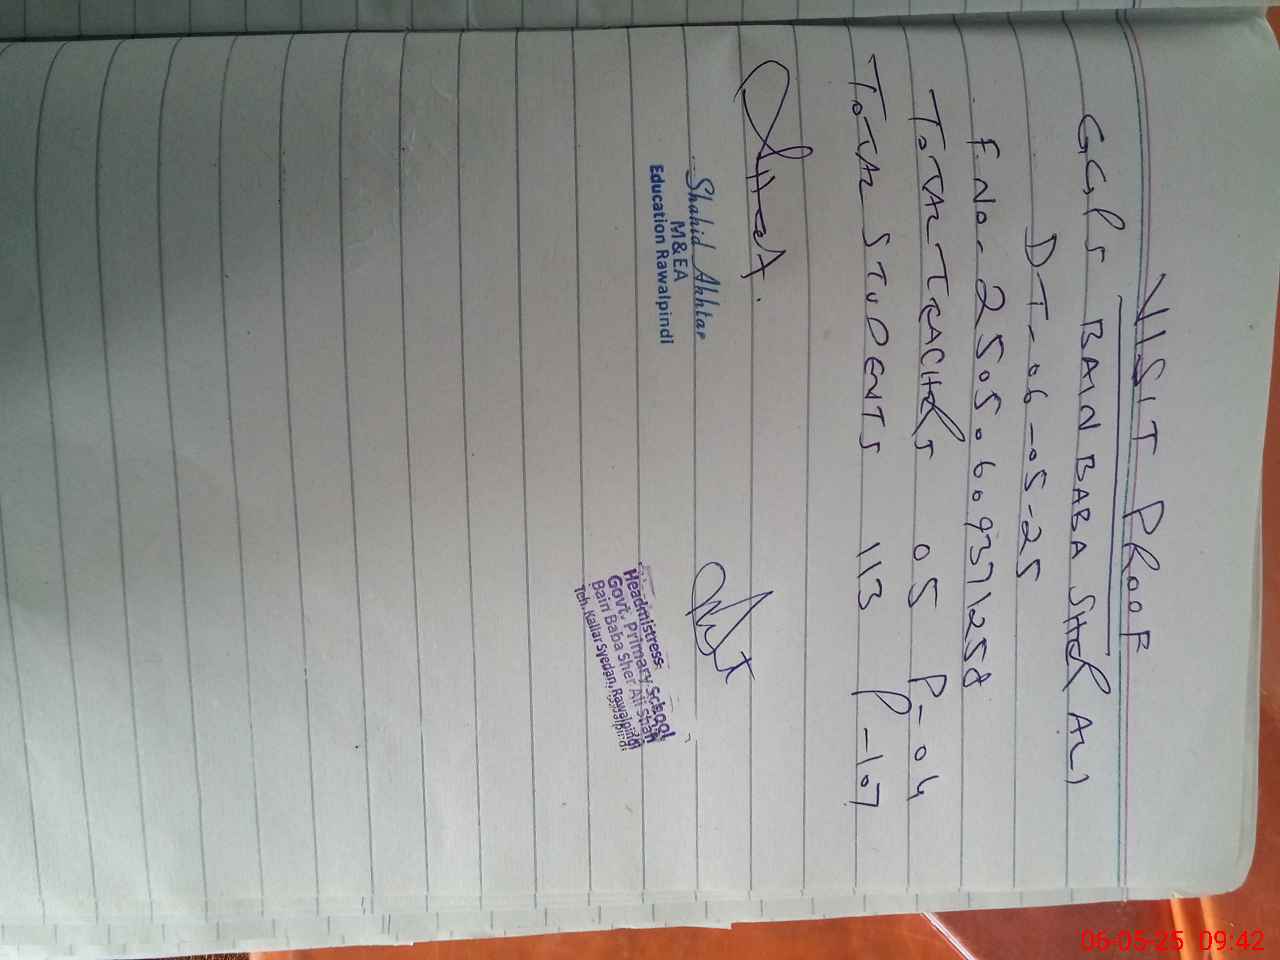 VISIT PROOF
GGPS BAIN BABA SHER ALI
DT-06-05-25
F.No-25050609371258
TOTAL TEACHERS 05 P-04
TOTAL STUDENTS 113 P-107
Shahid Akhtar
M&EA
Education Rawalpindi
Headmistress
Govt. Primary School
Bain Baba Sher Ali Shah
Teh. Kallar Syedan, Rawalpindi
06-05-25 09:42